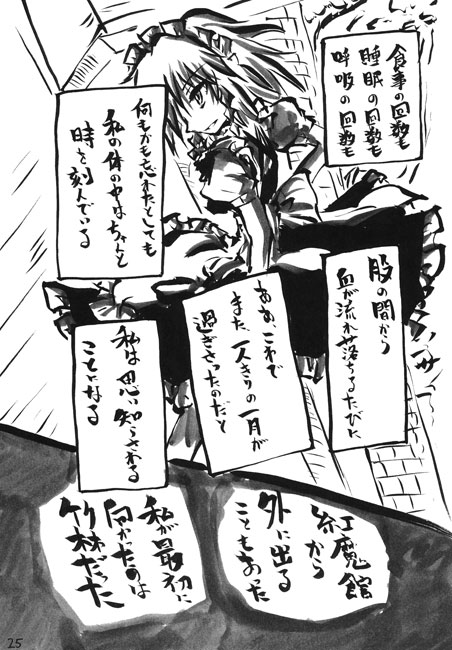 食事の回数も
睡眠の回数も
呼吸の回数も
何もかも忘れたとしても
私の体の中はちゃんと
時を刻んでいる
股の間から
血が流れ落ちるたびに
ああ、これで
また、一人きりの一月が
過ぎさったのだと
私は思い知らされる
ことになる
紅魔館から
外に出る
こともあった
私が最初に
向かったのは
竹林だった
25